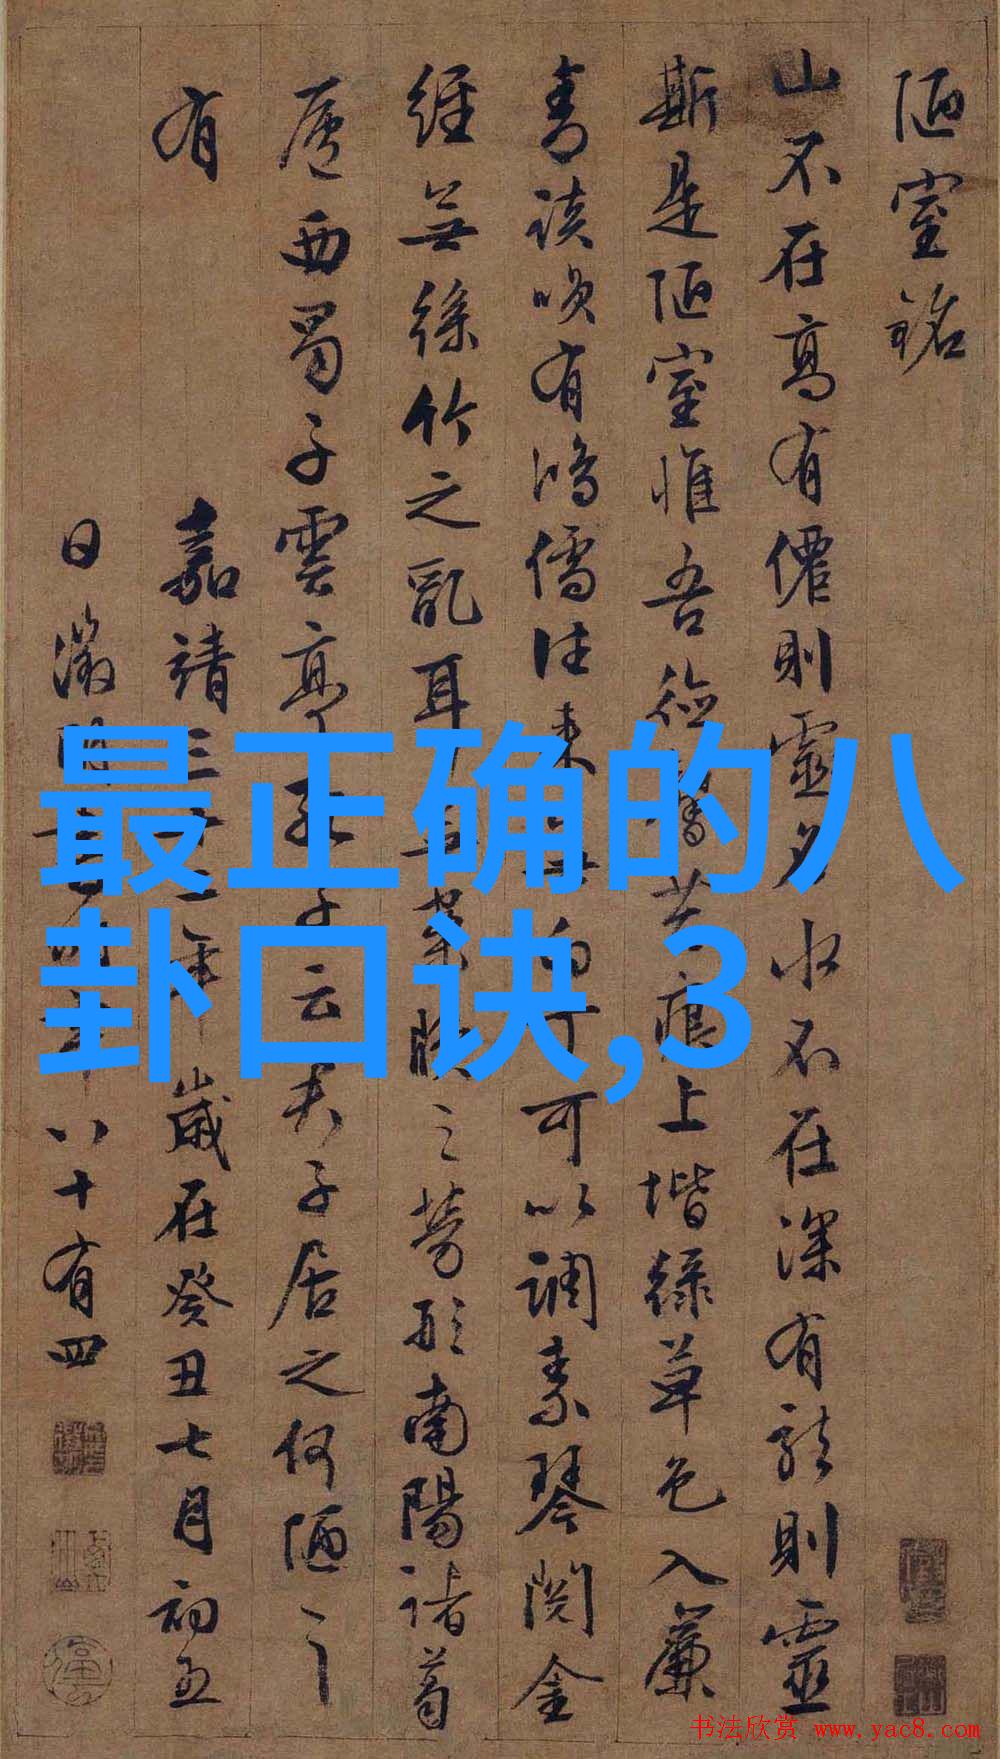 陋室銘
山不在高有僊則靈水不在深有龍則靈
斯是陋室惟吾德馨苔痕上堦綠草色入簾
青談唉有鴻儒往來無白丁可以調素琴閱金
經無絲竹之亂耳無案牘之勞形南陽諸葛
廬西蜀子雲亭孔子云君子居之何陋之
有
嘉靖三十二年歲在癸丑七月初五
日徵明書時年八十有四
最正确的八
卦口诀,3
书法欣赏 www.yac8.com